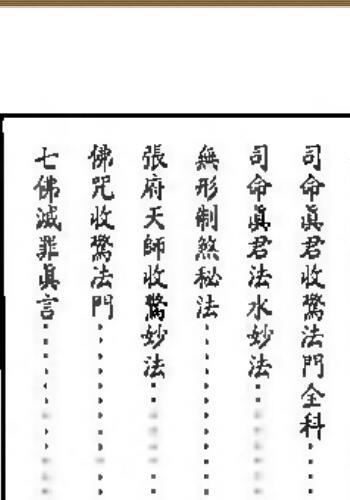 司命眞君收驚法門全科
司命眞君法水妙法
無形制煞秘法
張府天師收驚妙法
佛咒收驚法門
七佛滅罪眞言